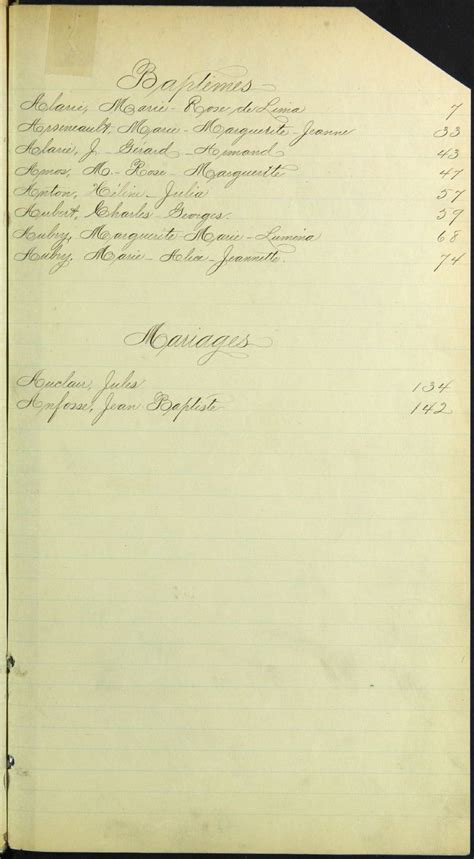 Baptêmes
Alarie, Marie-Rose de Lima 7
Arseneault, Marie-Marguerite-Jeanne 33
Alarie, J. Gérard-Armand 43
Amos, M.-Rose-Marguerite 47
Anton, Julia 57
Aubert, Charles-Georges. 59
Aubry, Marguerite-Marie-Lumina 68
Aubry, Marie-Alice-Jeannette. 74
Mariages
Auclair, Jules 134
Anfosse, Jean Baptiste 142